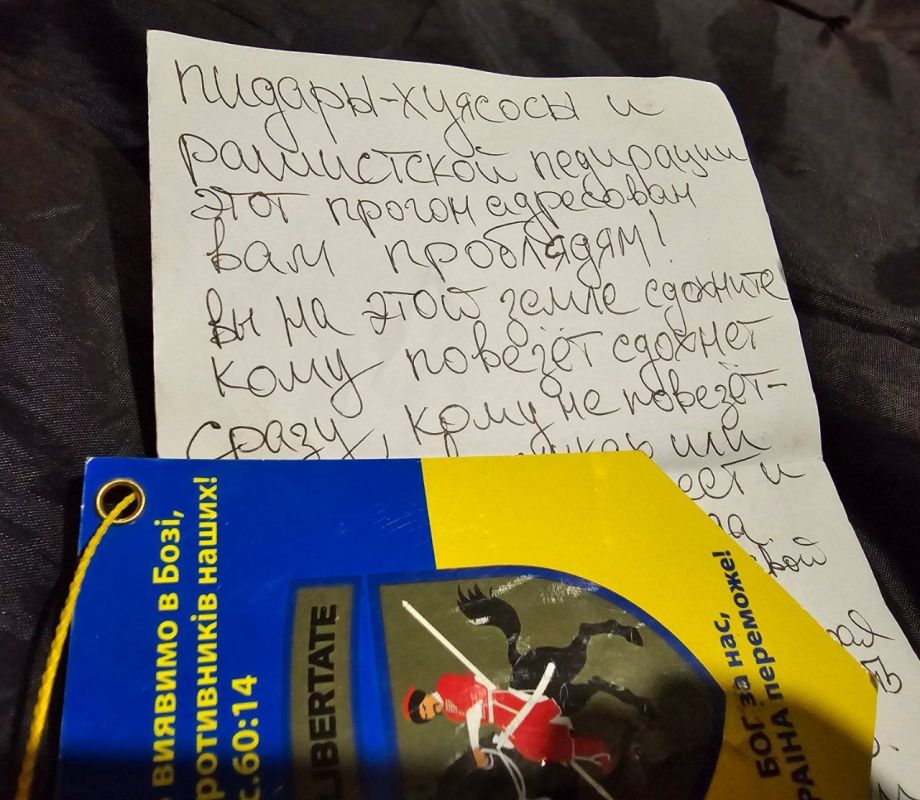 пидары-хуясосы и
рашистской педирации
этот прогон адресован
вам проблядям!
вы на этой земле сдохните
кому повезёт сдохнет
сразу, кому не повезёт-
или
и
виявимо в Бозі,
ротивників наших!
с.60:14
LIBERTATE
БОГ за нас,
РАЇНА переможе!